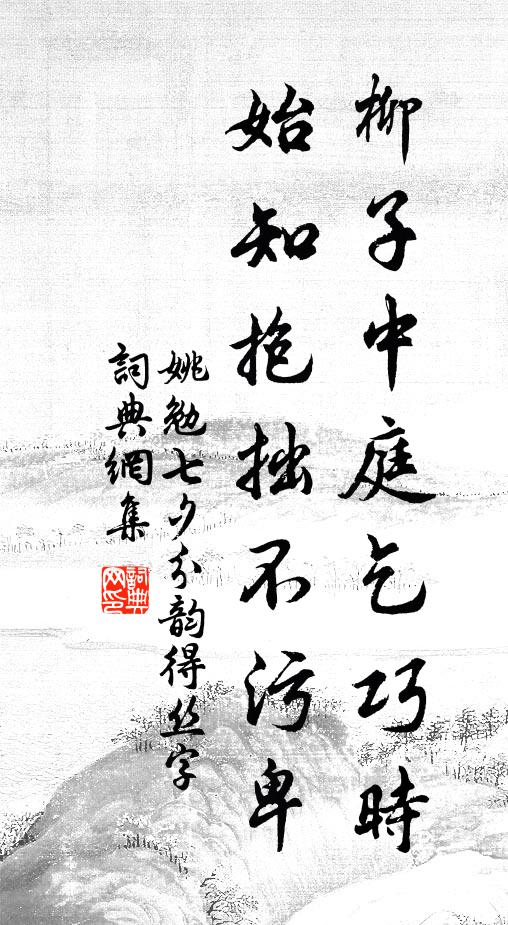 柳子中庭乞巧時
始知抱拙不污卑
姚勉七夕分韵得丝字
詞典網集
詞典網印